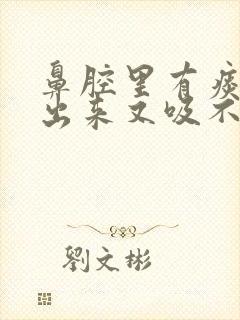 鼻腔里有痰
出来又吸不
劉文彬